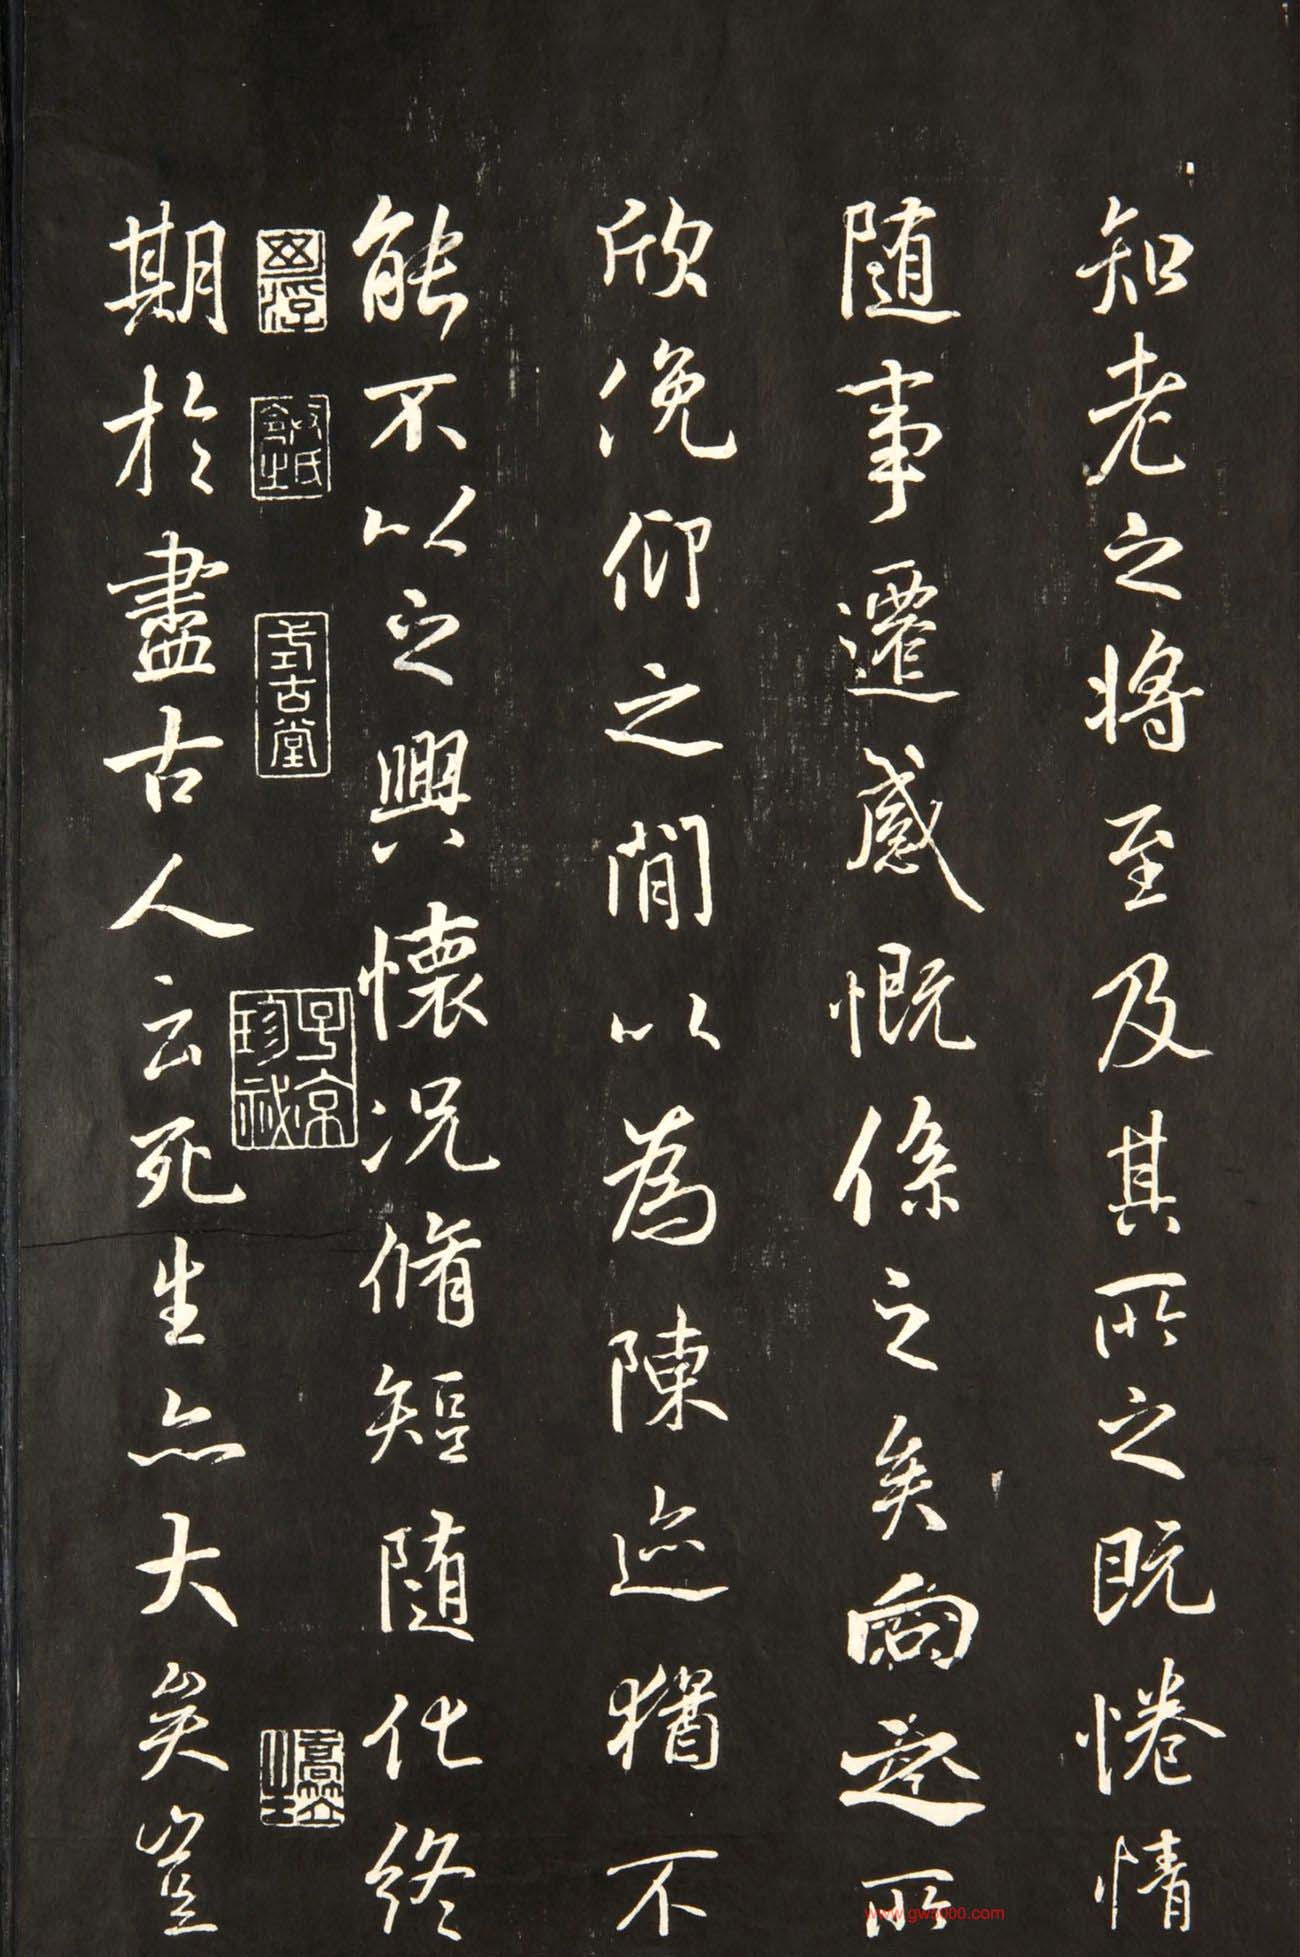 知老之將至及其所之既惓情
随事遷感慨係之矣向之所
欣俛仰之閒以為陳迹猶不
能不以之興懷況脩短随化終
期於盡古人云死生亦大矣豈
式古堂
子京
珍祕
www.gws000.com